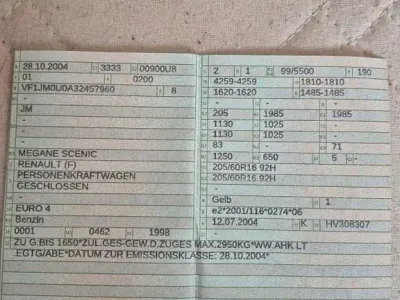 28.10.2004 3333 00900U8
01 0200
VF1JM0U0A32457960 8
-
JM
-
-
MEGANE SCENIC
RENAULT (F)
PERSONENKRAFTWAGEN
GESCHLOSSEN
-
EURO 4
Benzin
0001 0462 1998
2 1 99/5500 190
4259-4259 1810-1810
1620-1620 1485-1485
- - -
205 1985 1985
1130 1025 -
1130 1025 -
83 - 71
1250 650 5 -
205/60R16 92H
205/60R16 92H
-
Gelb 1
e2*2001/116*0274*06
12.07.2004 K HV308307
ZU G.BIS 1650*ZUL.GES-GEW.D.ZUGES MAX.2950KG*WW.AHK LT
.EGTG/ABE*DATUM ZUR EMISSIONSKLASSE: 28.10.2004*